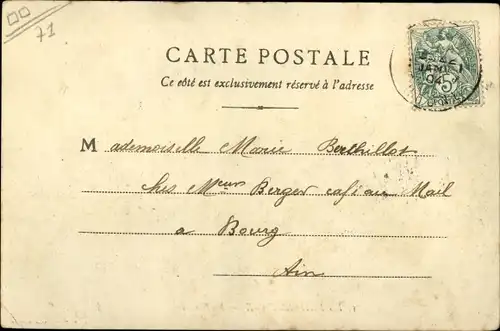 71
CARTE POSTALE
Ce côté est exclusivement réservé à l'adresse
Mademoiselle Marie Berthillot
chez Meur Berger café au Mail
a Bourg
Ain
JANV
04
5